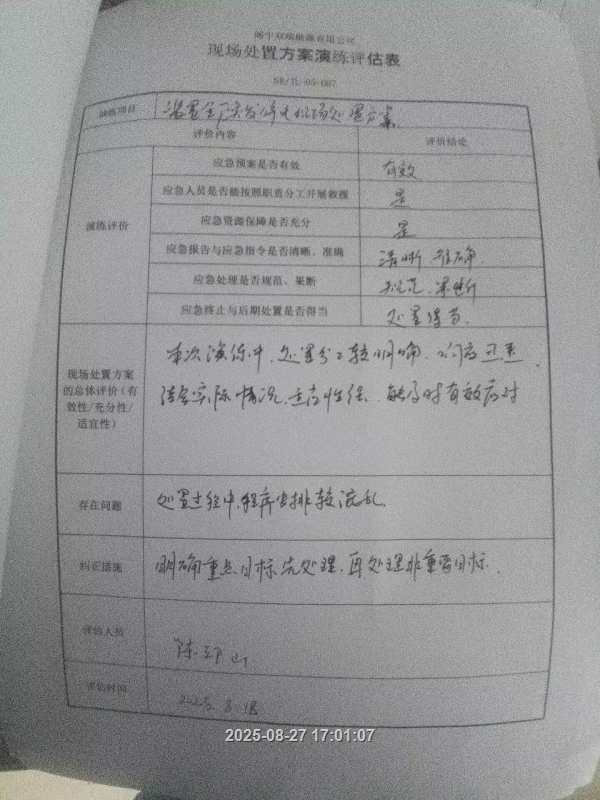 阆中双瑞能源有限公司
现场处置方案演练评估表
SR/JL-05-067
演练项目 装置全厂突发停电现场处置方案
评价内容 评价结论
演练评价
应急预案是否有效 有效
应急人员是否能按照职责分工开展救援 是
应急资源保障是否充分 是
应急报告与应急指令是否清晰、准确 清晰、准确。
应急处理是否规范、果断 规范、果断
应急终止与后期处置是否得当 处置得当。
现场处置方案的总体评价(有效性/充分性/适宜性)
本次演练中,处置分工较明确,响应迅速,
结合实际情况,适应性强,能及时有效应对
存在问题 处置过程中,程序安排较混乱
纠正措施 明确重点目标先处理,再处理非重要目标。
评估人员 陈
评估时间 2025.8.18
2025-08-27 17:01:07